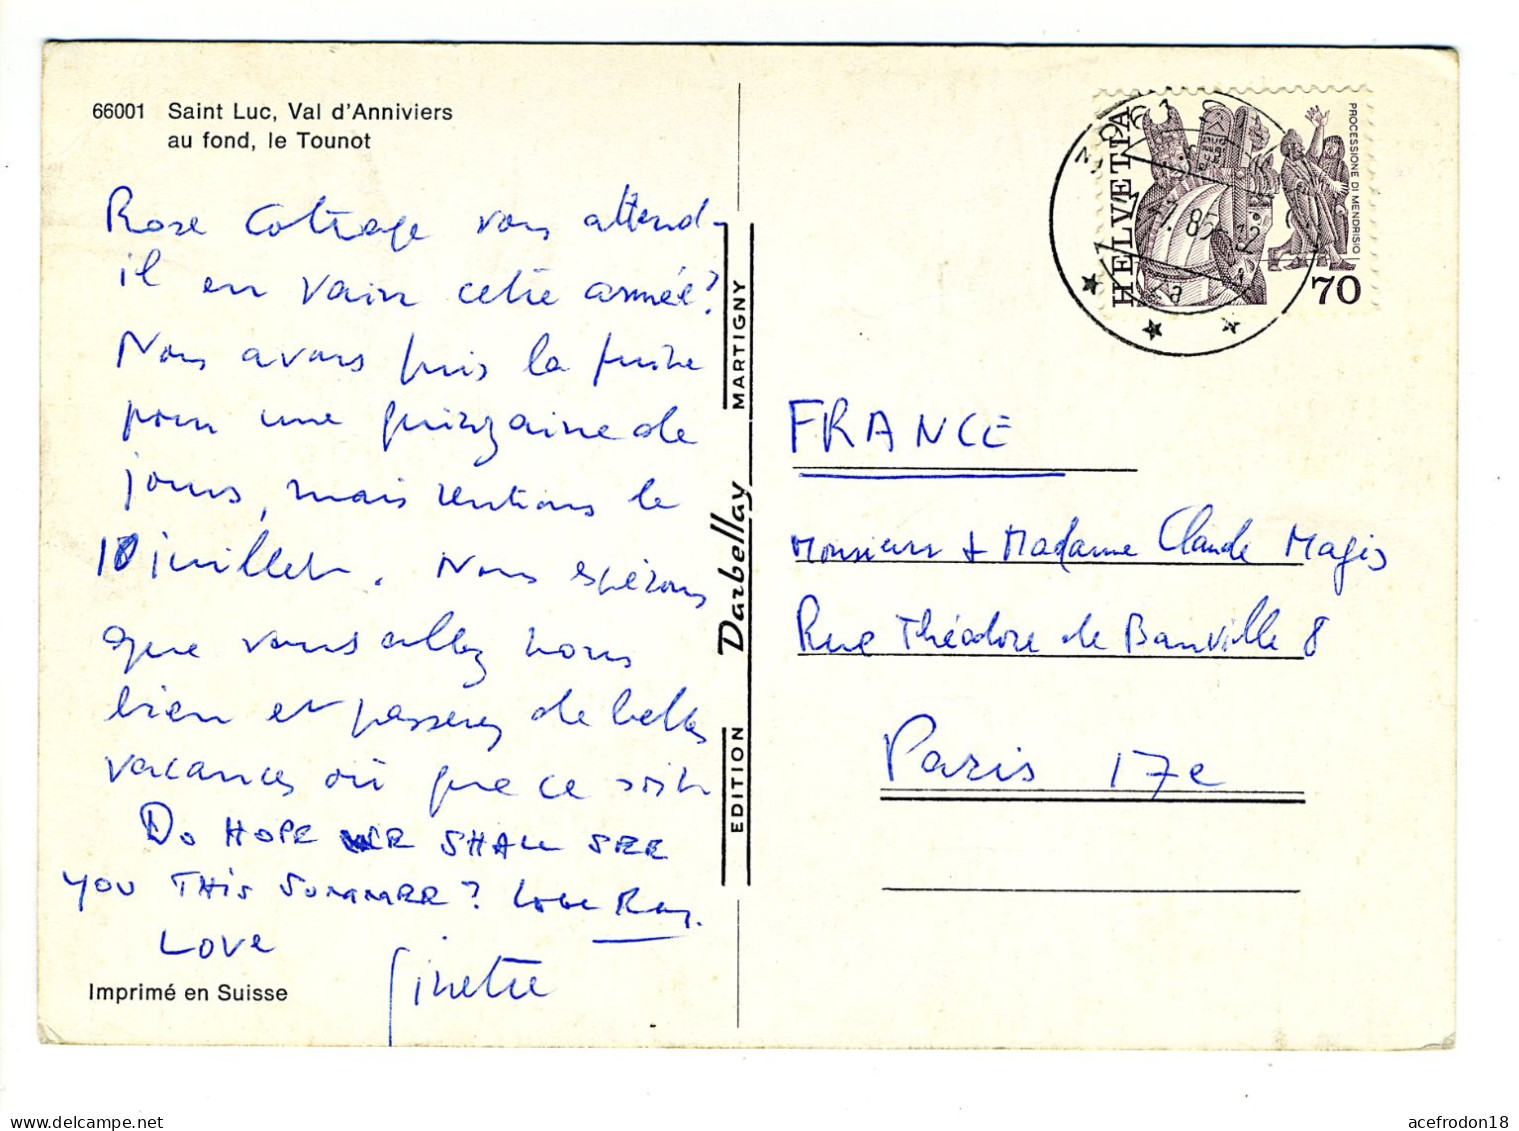 66001 Saint Luc, Val d'Anniviers
au fond, le Tounot
Rose Cottage vous attend-
il en vain cette année?
Nous avons pris la fuite
pour une quinzaine de
jours, mais rentrons le
10 juillet. Nous espérons
que vous allez nous
bien et passerez de belles
vacances où que ce soit
DO HOPE WE SHALL SEE
YOU THIS SUMMER? Love Ray.
LOVE
Ginette
Imprimé en Suisse
EDITION Darbellay MARTIGNY
HELVETIA
PROCESSIONE DI MENDRISIO
70
FRANCE
Monsieur & Madame Claude Magis
Rue Théodore de Banville 8
Paris 17e
acefrodon18